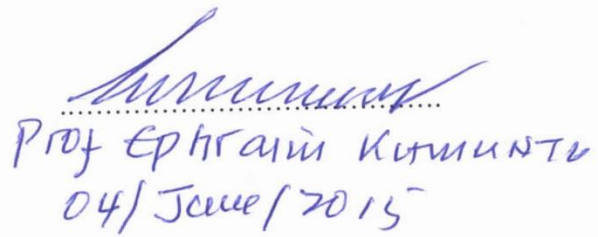 Prof Ephraim Kamuhatu
04/June/2015